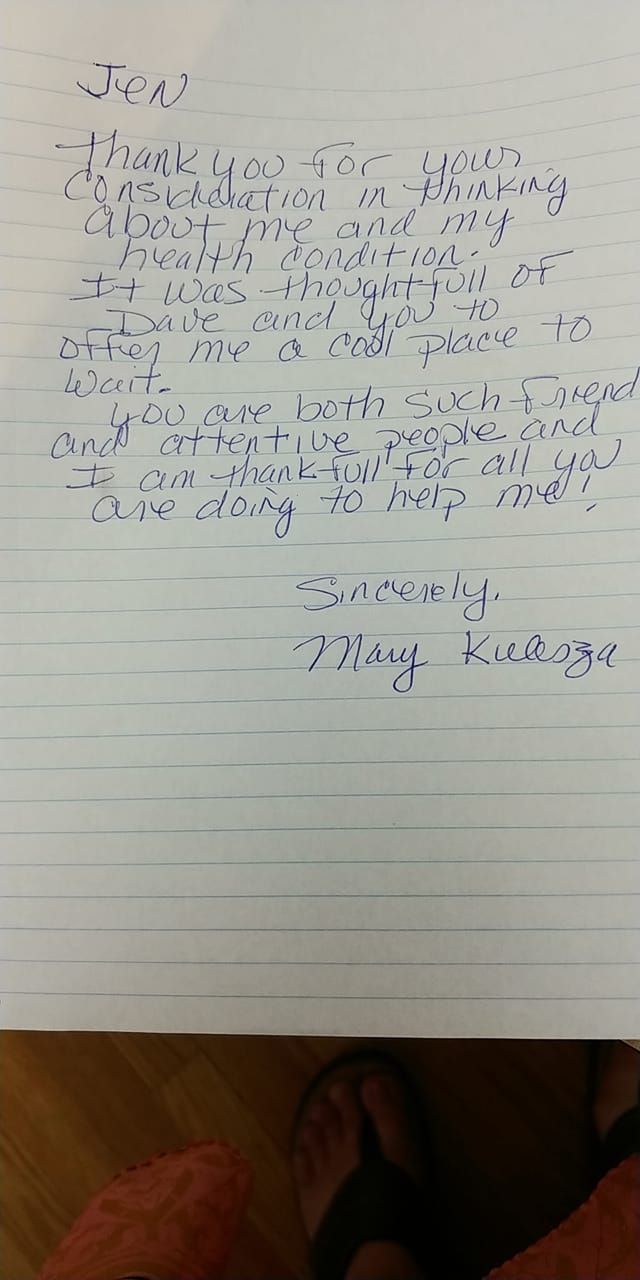 JEN
Thank you for your
Considelation in thinking
about me and my
health condition.
It was thoughtfull of
Dave and you to
offer me a cool place to
wait.
You are both such friend
and attentive people and
I am thankfull for all you
are doing to help me!
Sincerely,
Mary